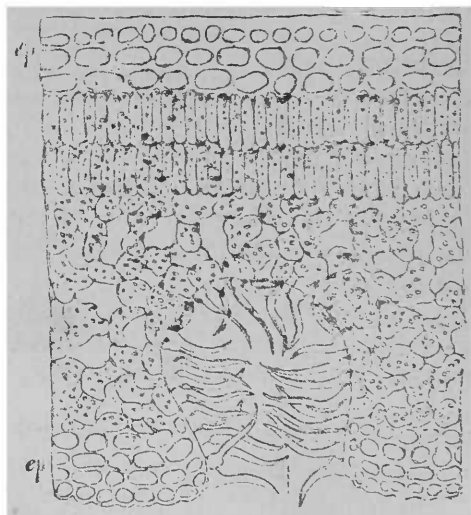 ep
ep